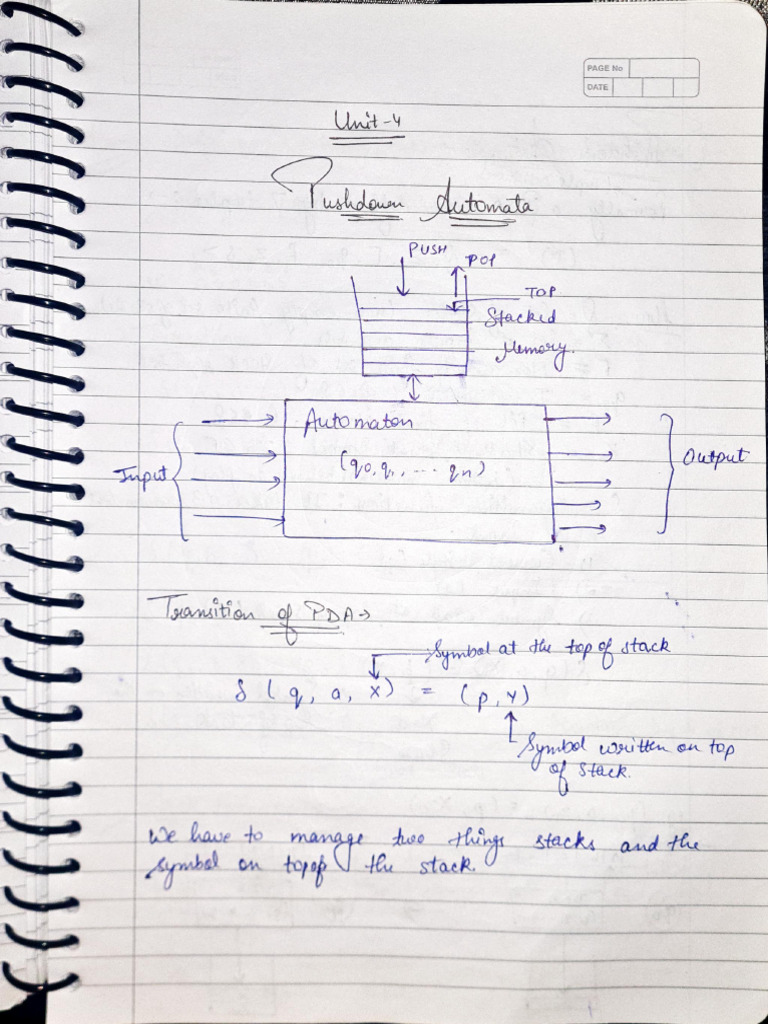 PAGE No
DATE
Unit-4
Pushdown Automata
PUSH
POP
TOP
Stacked
Memory.
Automaton
(q0, q1, ... qn)
Input
Output
Transition of PDA→
Symbol at the top of stack
δ ( q, a, x) = (p, y)
Symbol written on top
of stack.
We have to manage two things stacks and the
symbol on top of the stack.